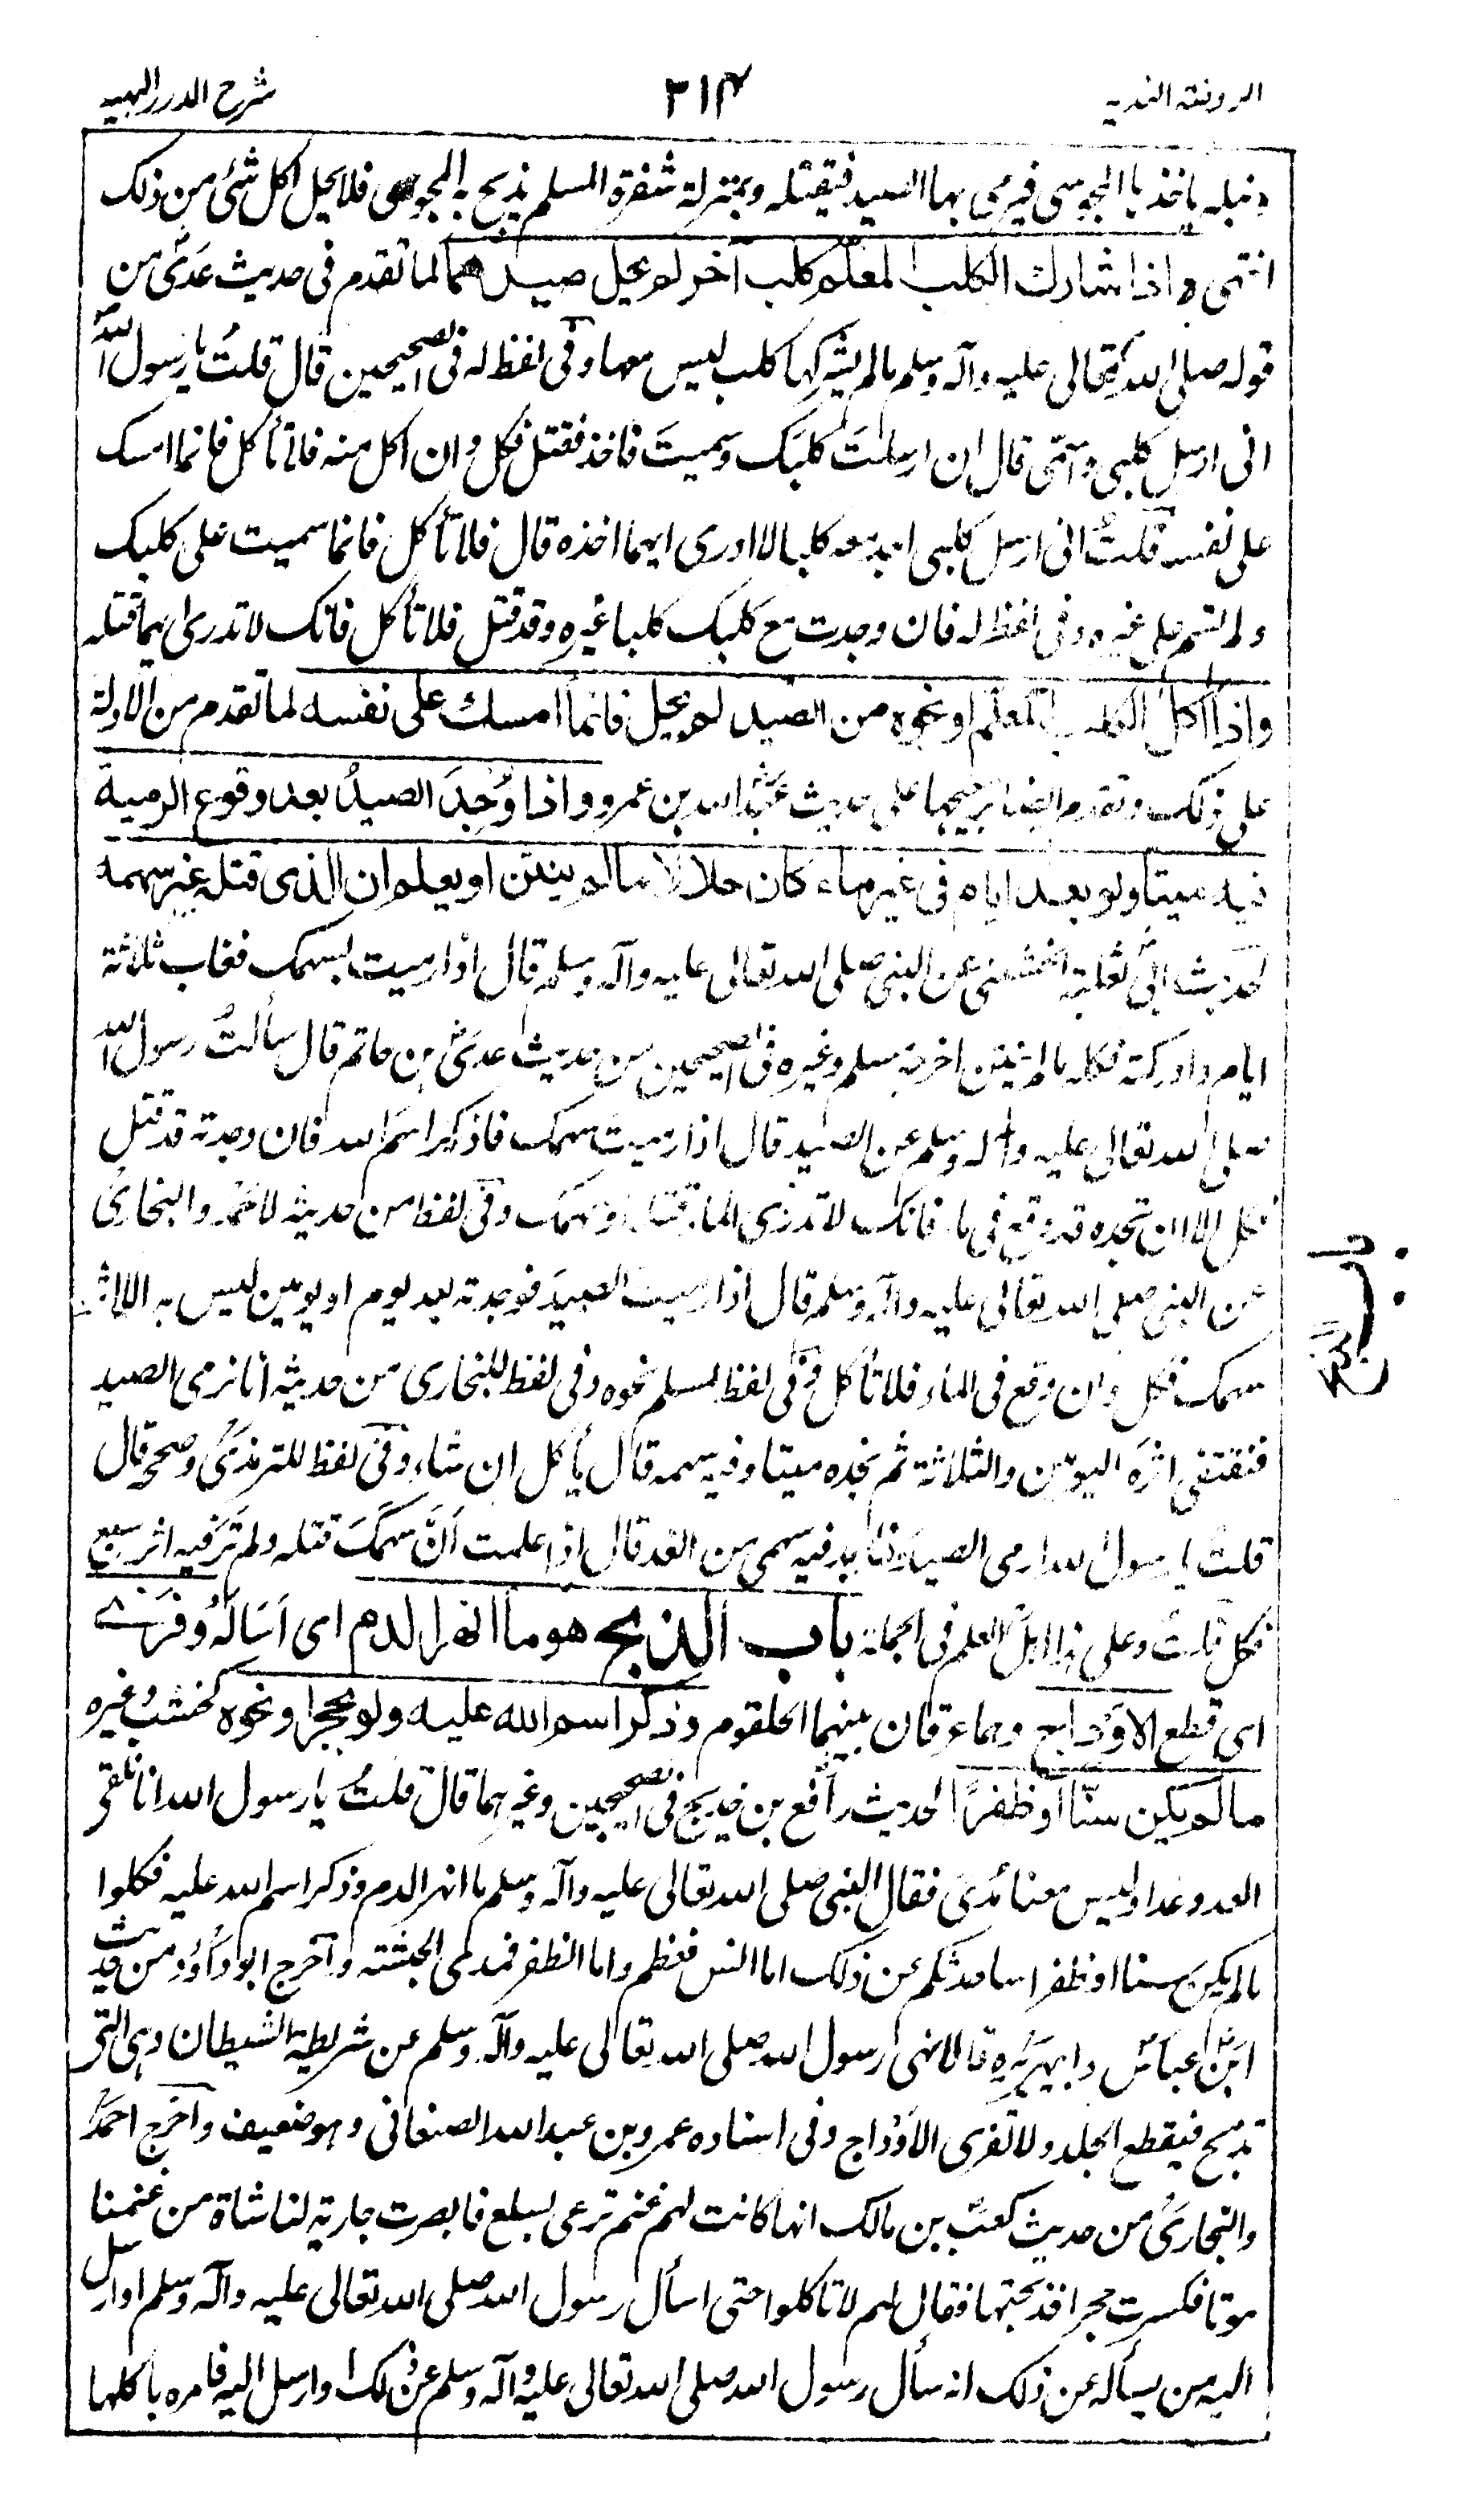 الروضة الندية
٣١٤
شرح الدرر البهية
ونبله يأخذها المجوسى فيرمى بها الصيد فيقتله وبمنزلة شفرة المسلم يذبح به المجوسى فلا يحل اكل شئ من ذلك
انتهى واذا شارك الكلب المعلم كلب آخر لم يحل صيدهما لما تقدم فى حديث عدى من
قوله صلى الله تعالى عليه وآله وسلم ما لم يشركها كلب ليس معها وفى لفظ له فى الصحيحين قال قلت يا رسول الله
انى ارسل كلبى واسمى قال ان ارسلت كلبك وسميت فاخذ فقتل فكل وان اكل منه فلا تأكل فانما امسك
على نفسه قلت انى ارسل كلبى اجد معه كلبا لا ادرى ايهما اخذه قال فلا تأكل فانما سميت على كلبك
ولم تسم على غيره وفى لفظ له فان وجدت مع كلبك كلبا غيره وقد قتل فلا تأكل فانك لا تدرى ايهما قتله
واذا اكل الكلب المعلم او نحوه من الصيد لم يحل فانما امسك على نفسه لما تقدم من الادلة
على ذلك وتقدم ايضا ترجيحها على حديث عبد الله بن عمرو واذا وُجِدَ الصيدُ بعد وقوع الرمية
فيه ميتا ولو بعد ايام فى غير ماء كان حلالا ما لم ينتن او يعلم ان الذى قتله غير سهمه
لحديث ابى ثعلبة الخشنى عن النبى صلى الله تعالى عليه وآله وسلم قال اذا رميت بسهمك فغاب ثلاثة
ايام وادركته فكله ما لم ينتن اخرجه مسلم وغيره وفى الصحيحين من حديث عدى بن حاتم قال سألتُ رسول الله
صلى الله تعالى عليه وآله وسلم عن الصيد قال اذا رميت سهمك فاذكر اسم الله فان وجدته قد قتل
فكل الا ان تجده قد وقع فى ماء فانك لا تدرى الماء قتله او سهمك وفى لفظ من حديثه لاحمد والبخارى
عن النبى صلى الله تعالى عليه وآله وسلم قال اذا رميت الصيد فوجدته بعد يوم او يومين ليس به الا اثر
سهمك فكل وان وقع فى الماء فلا تأكل وفى لفظ لمسلم نحوه وفى لفظ للبخارى من حديثه انا نرمى الصيد
فنقتفى اثره اليومين والثلاثة ثم نجده ميتا وفيه سهمه قال يأكل ان شاء وفى لفظ للترمذى وصححه قال
قلت يا رسول الله ارمى الصيد فاجد فيه سهمى من الغد قال اذا علمت اَنَّ سهمكَ قتله ولم تَرَ فيه اثر سبع
فكل قلت وعلى هذا اهل العلم فى الجملة باب الذبح هو ما انهر الدم اى اَسَالَهُ وفرى
اى قطع الاَوْداج وهما عرقان بينهما الحلقوم وذكر اسم الله عليه ولو بحجر او نحوه كخشب وغيره
ما لم يكن سنّا او ظفرًا لحديث رافع بن خديج فى الصحيحين وغيرهما قال قلتُ يا رسول الله انا نلقى
العدو غدا وليس معنا مُدىً فقال النبى صلى الله تعالى عليه وآله وسلم ما انهر الدم وذكر اسم الله عليه فكلوا
ما لم يكن سنا او ظفرا ساحدثكم عن ذلك اما السن فعظم واما الظفر فمدى الحبشة واخرج ابو داؤد من حديث
ابن عباس وابى هريرة قالا نهى رسول الله صلى الله تعالى عليه وآله وسلم عن شريطة الشيطان وهى التى
تذبح فيقطع الجلد ولا تفرى الاَوْداج وفى اسناده عمرو بن عبد الله الصنعانى وهو ضعيف واخرج احمد
والبخارى من حديث كعب بن مالك انها كانت لهم غنم ترعى بسلع فابصرت جارية لنا شاة من غنمنا
موتا فكسرت حجرا فذبحتها فقال لهم لا تأكلوا حتى اسأل رسول الله صلى الله تعالى عليه وآله وسلم او ارسل
اليه من يسأله عن ذلك انه سأل رسول الله صلى الله تعالى عليه وآله وسلم عن ذلك او ارسل اليه فامره باكلها
باب الذبح